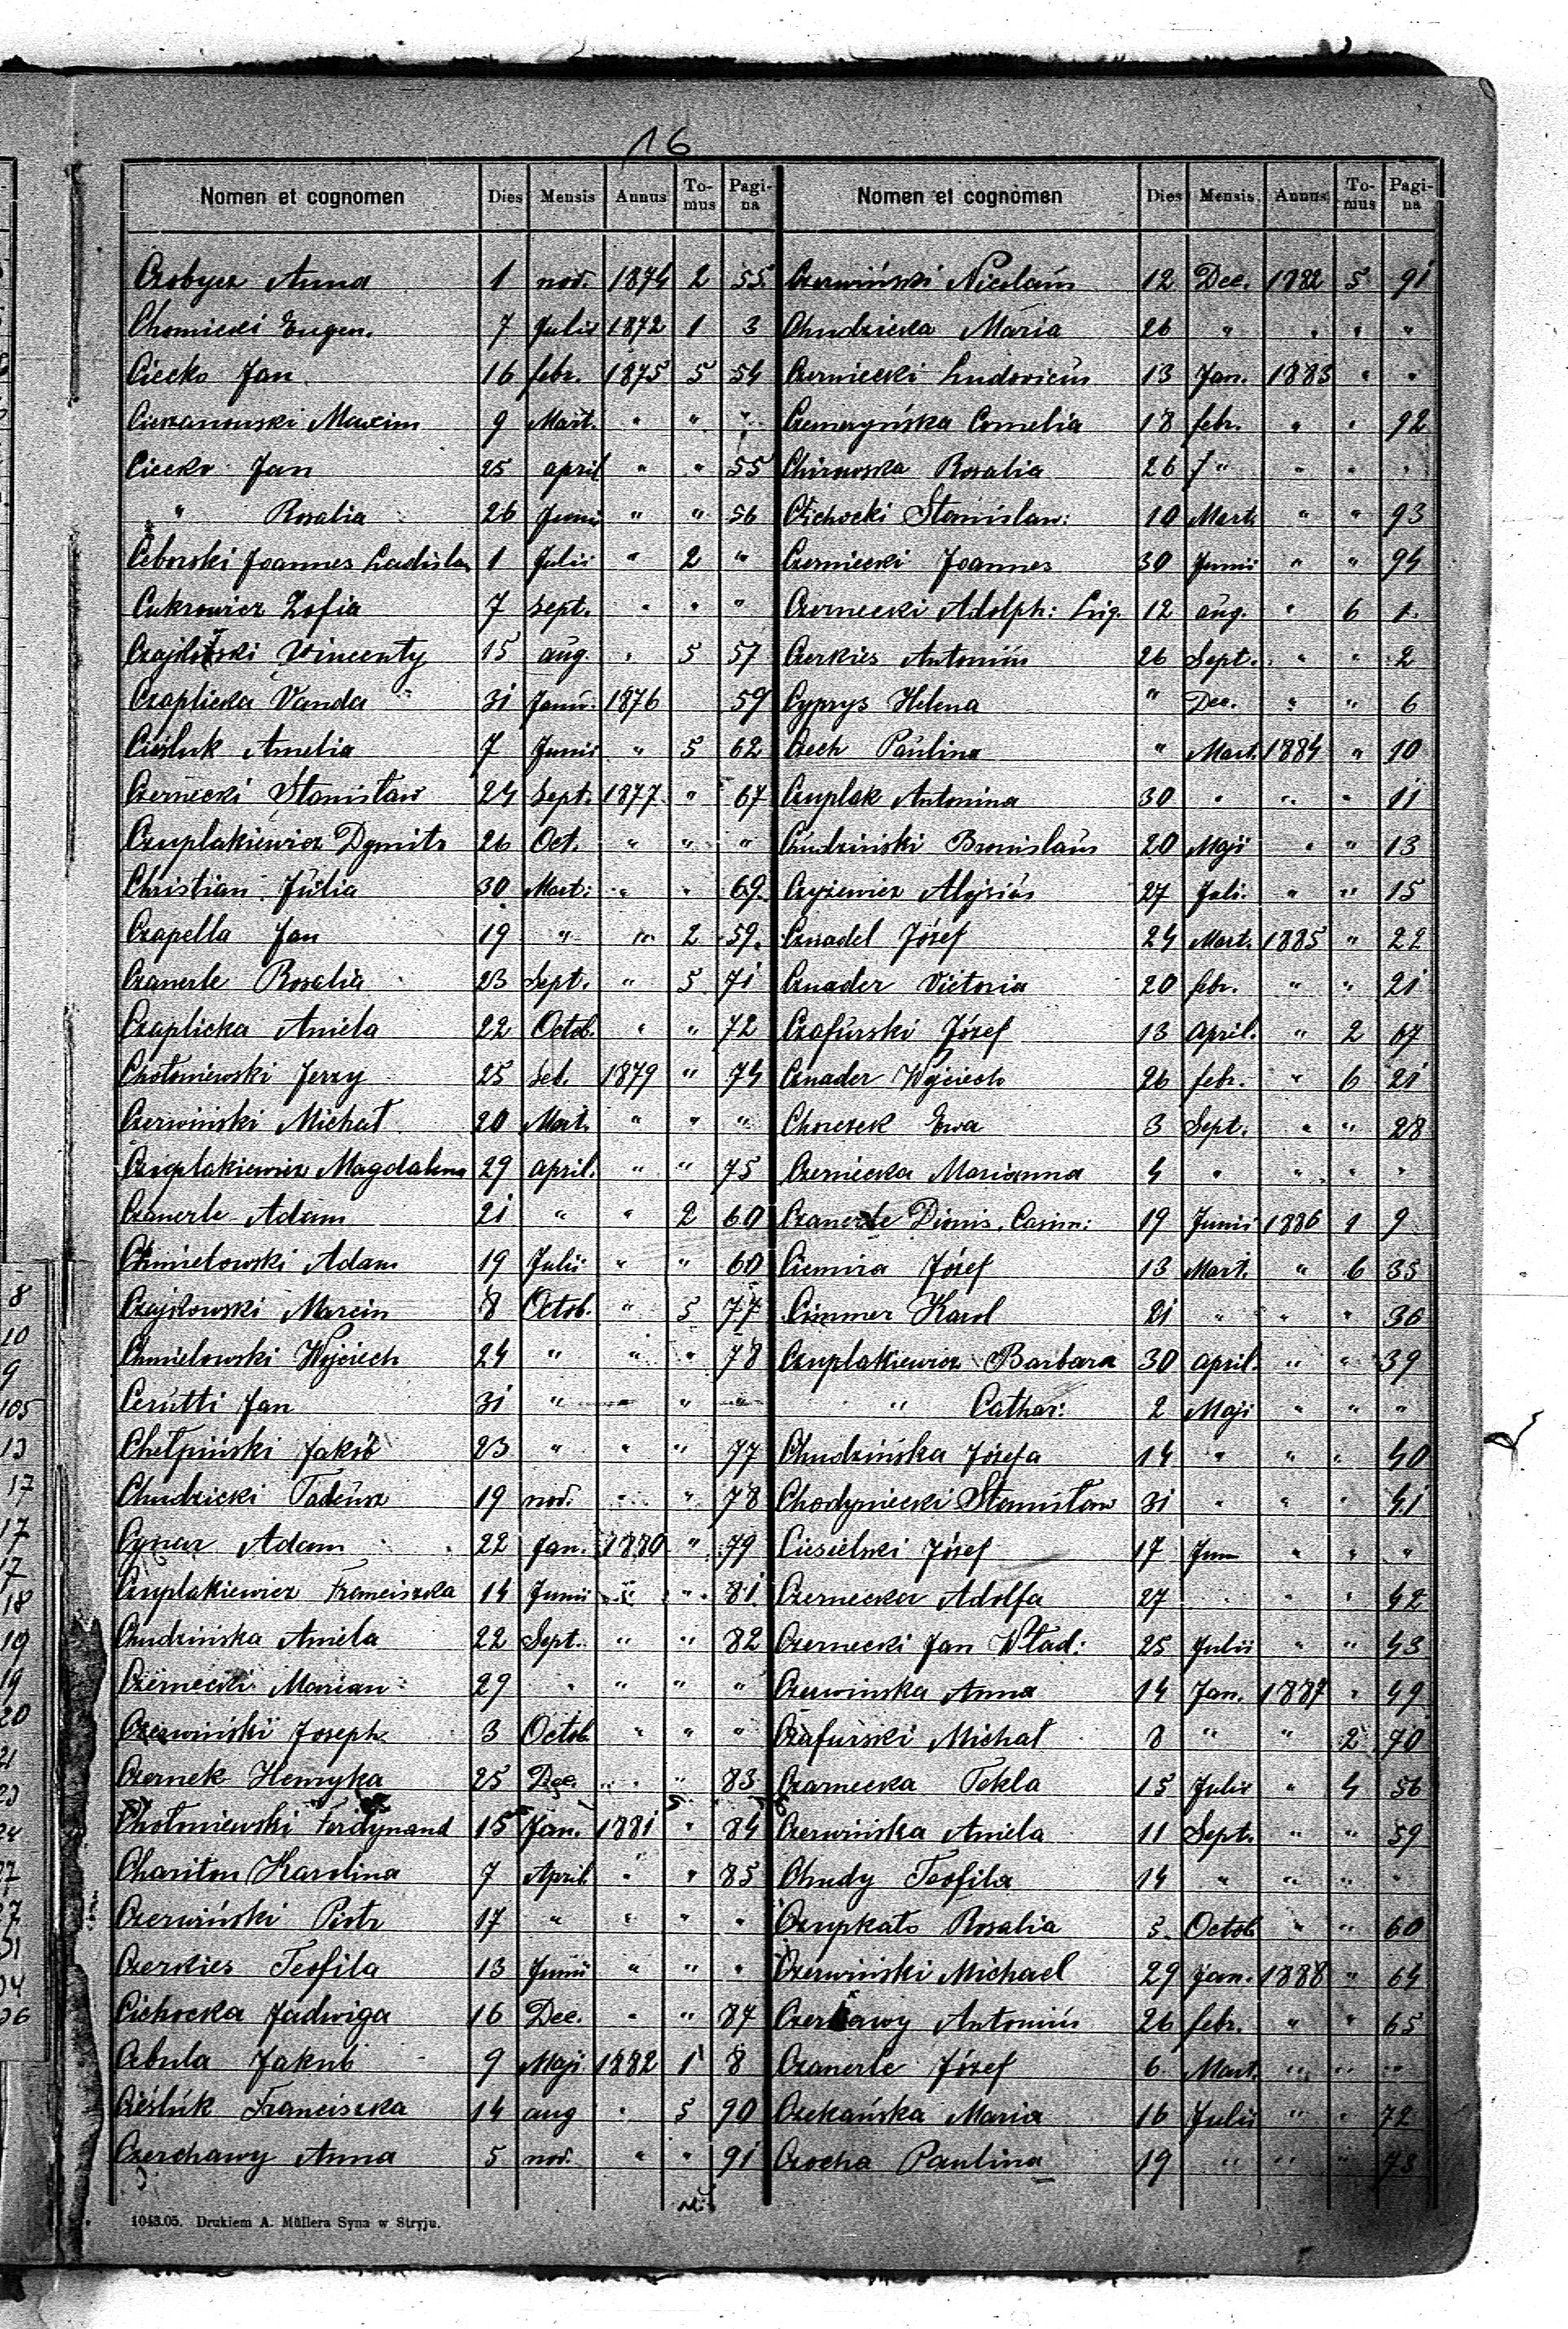 16
Nomen et cognomen Dies Mensis Annus To-mus Pagi-na
Czobycz Anna 1 nov. 1874 2 55
Chomicki Eugen. 7 Julii 1872 1 3
Ciecko Jan 16 febr. 1875 5 54
Ciezanowski Maxim 9 Mart. " " "
Ciecko Jan 25 april " " 55
" Rosalia 26 Junii " " 56
Ceborski Joannes Ladislaus 1 Julii " 2 "
Cukrowicz Zofia 7 Sept. " " "
Czajkowski Vincenty 15 aug. " 5 57
Czaplicka Vanda 31 Janu. 1876 59
Cieśluk Amelia 7 Junii " 5 62
Czernecki Stanisław 24 Sept. 1877 " 67
Czuplakiewicz Dymitr 26 Oct. " " "
Christian Julia 30 Mart: " " 69
Czapella Jan 19 " " 2 59
Czanerle Rosalia 23 Sept. " 5 71
Czaplicka Aniela 22 Octob. " " 72
Chołoniewski Jerzy 25 1879 " 74
Czerwiński Michał 20 Mart. " " "
Czuplakiewicz Magdalena 29 april. " " 75
Czanerle Adam 21 " " 2 60
Chmielowski Adam 19 Julii " " 60
Czajkowski Marcin 8 Octob. " 5 77
Chmielowski Wojciech 24 " " " 78
Cerutti Jan 31 " " " "
Chełpiński Jakób 23 " " " 77
Chudzicki Tadeusz 19 nov. " " 78
Cynar Adam 22 Jan. 1880 " 79
Czuplakiewicz Franciszka 14 Junii " " 81
Chudzińska Aniela 22 Sept. " " 82
Czernecki Marian 29 " " " "
Czerwiński Joseph 3 Octob. " " "
Czernek Henryka 25 Dec. " " 83
Chołoniewski Ferdynand 15 Jan. 1881 " 84
Chariton Karolina 7 April. " " 85
Czerwiński Piotr 17 " " " "
Czerkies Teofila 13 Junii " " "
Cichocka Jadwiga 16 Dec. " " 87
Cebula Jakub 9 Maji 1882 1 8
Cieśluk Franciszka 14 aug " 5 90
Czerchawy Anna 5 nov. " " 91
Nomen et cognomen Dies Mensis Annus To-mus Pagi-na
Czerwiński Nicolaus 12 Dec. 1882 5 91
Chudzicka Maria 26 " " " "
Czerniecki Ludovicus 13 Jan. 1883 " "
Czemeryńska Cornelia 18 febr. " " 92
Chirowska Rosalia 26 f " " " "
Cichocki Stanislaw: 10 Mart. " " 93
Czerniecki Joannes 30 Junii " " 94
Czernecki Adolph: Eug. 12 aug. " 6 1
Czerkies Antonius 26 Sept. " " 2
Cyprys Helena " Dec. " " 6
Czech Paulina " Mart. 1884 " 10
Czuplak Antonina 30 " " " 11
Chudziński Bronislaus 20 Maji " " 13
Czyżewicz Alojsius 27 Juli. " " 15
Cznadel Józef 24 Mart. 1885 " 22
Cznader Victoria 20 febr. " " 21
Czafurski Józef 13 April. " 2 67
Cznader Wojciech 26 febr. " 6 21
Chorczek Ewa 3 Sept. " " 28
Czerniecka Marianna 4 " " " "
Czanerle Dionis. Casim: 19 Junii 1886 1 9
Ciemira Józef 13 Mart. " 6 35
Cimmer Karol 21 " " " 36
Czuplakiewicz Barbara 30 april. " " 39
" Cathar: 2 Maji " " "
Chudzińska Józefa 14 " " " 40
Chodyniecki Stanisław 31 " " " 41
Ciesielski Józef 17 Jun " " "
Czernecka Adolfa 27 " " " 42
Czernecki Jan Wład: 25 Julii " " 43
Czerwinska Anna 14 Jan. 1887 " 49
Czafurski Michał 8 " " 2 70
Czarnecka Tekla 15 Julii " 4 56
Czerwińska Aniela 11 Sept. " " 59
Chudy Teofila 14 " " " "
Czupkato Rosalia 3. Octob " " 60
Czerwiński Michael 29 Jan. 1888 " 64
Czerchawy Antonius 26 febr. " " 65
Czanerle Józef 6 Mart. " " "
Czekańska Maria 16 Julii " " 72
Czocha Paulina 19 " " " 73
1043.05. Drukiem A. Müllera Syna w Stryju.